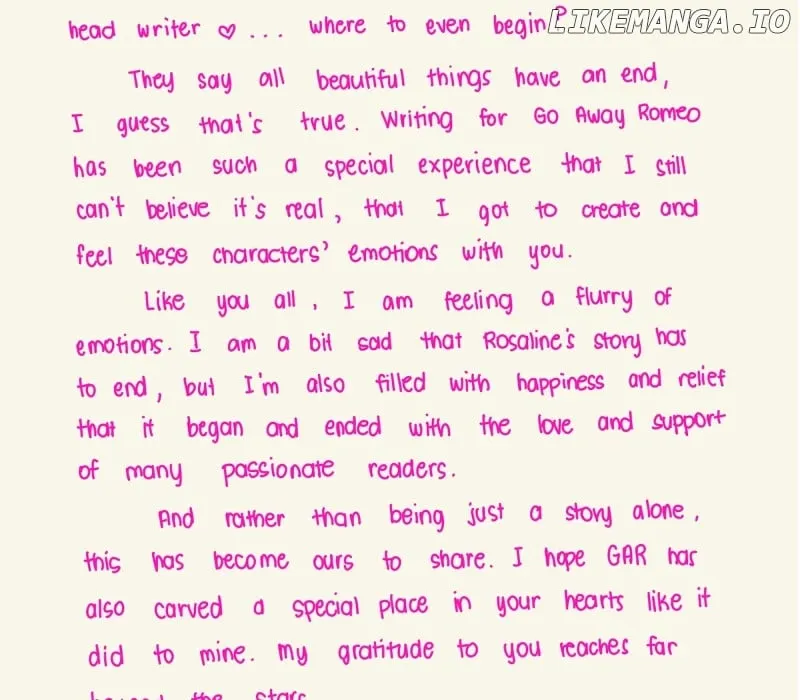 head writer ♡ ... where to even begin?
LIKEMANGA.IO
They say all beautiful things have an end,
I guess that's true. Writing for Go Away Romeo
has been such a special experience that I still
can't believe it's real, that I got to create and
feel these characters' emotions with you.
Like you all, I am feeling a flurry of
emotions. I am a bit sad that Rosaline's story has
to end, but I'm also filled with happiness and relief
that it began and ended with the love and support
of many passionate readers.
And rather than being just a story alone,
this has become ours to share. I hope GAR has
also carved a special place in your hearts like it
did to mine. My gratitude to you reaches far
beyond the stars